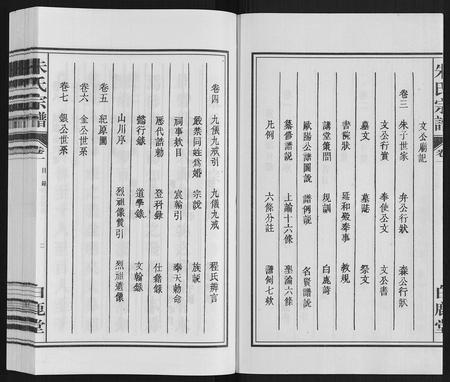 朱氏宗譜
卷一
白鹿堂
文公廟記
卷三 朱子世家 弁公行狀 森公行狀
文公行實 奉使公文 文公書
墓文 墓誌 祭文
書院狀 延和殿奏事 教規
講堂策問 規訓 白鹿詩
歐陽公譜圖說 譜例說 名賢譜說
纂修譜說 上諭十六條 聖諭六條
凡例 六條分註 譜例七款
卷四 九儀九戒引 九儀九戒 程氏辨言
嚴禁同姓為婚 宗說 族說
祠事款目 宸翰引 奉天勅命
歷代誥勅 登科錄 仕籍錄
懿行錄 道學錄 文翰錄
山川序 烈祖像贊引 烈祖遺像
卷五 紀原圖
卷六 金公世系
卷七 銀公世系
朱氏宗譜
卷一
目錄
二
白鹿堂